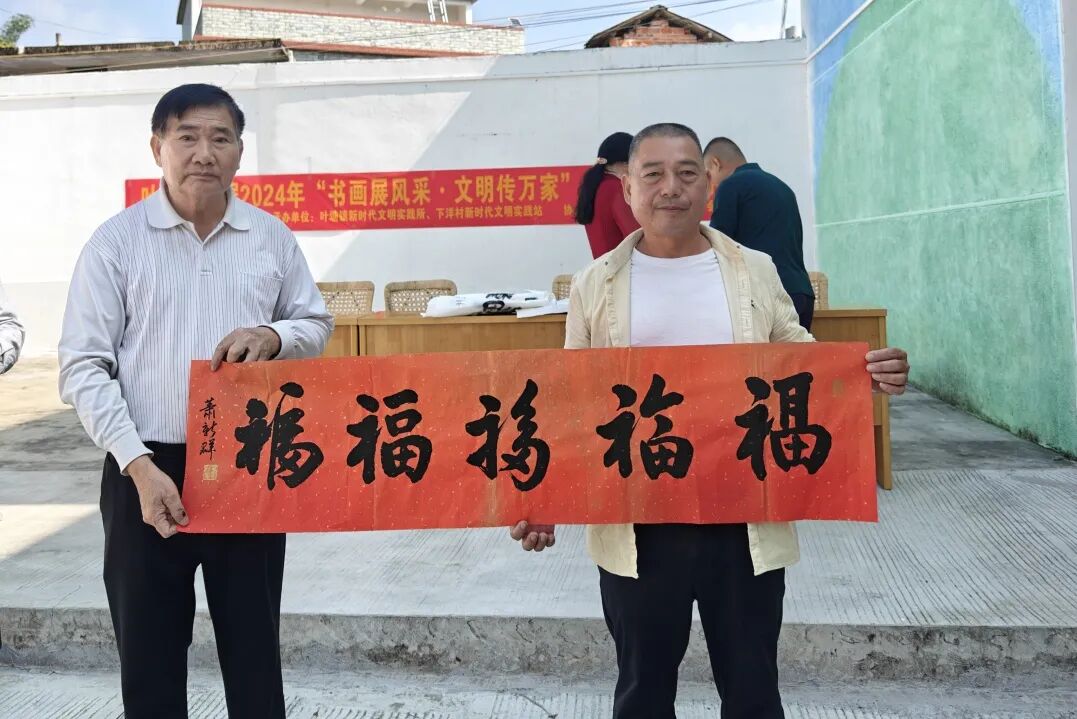 叶 2024年“书画展风采·文明传万家”
办单位：叶塘镇新时代文明实践所、下洋村新时代文明实践站 协
福福福福福
蕭新群